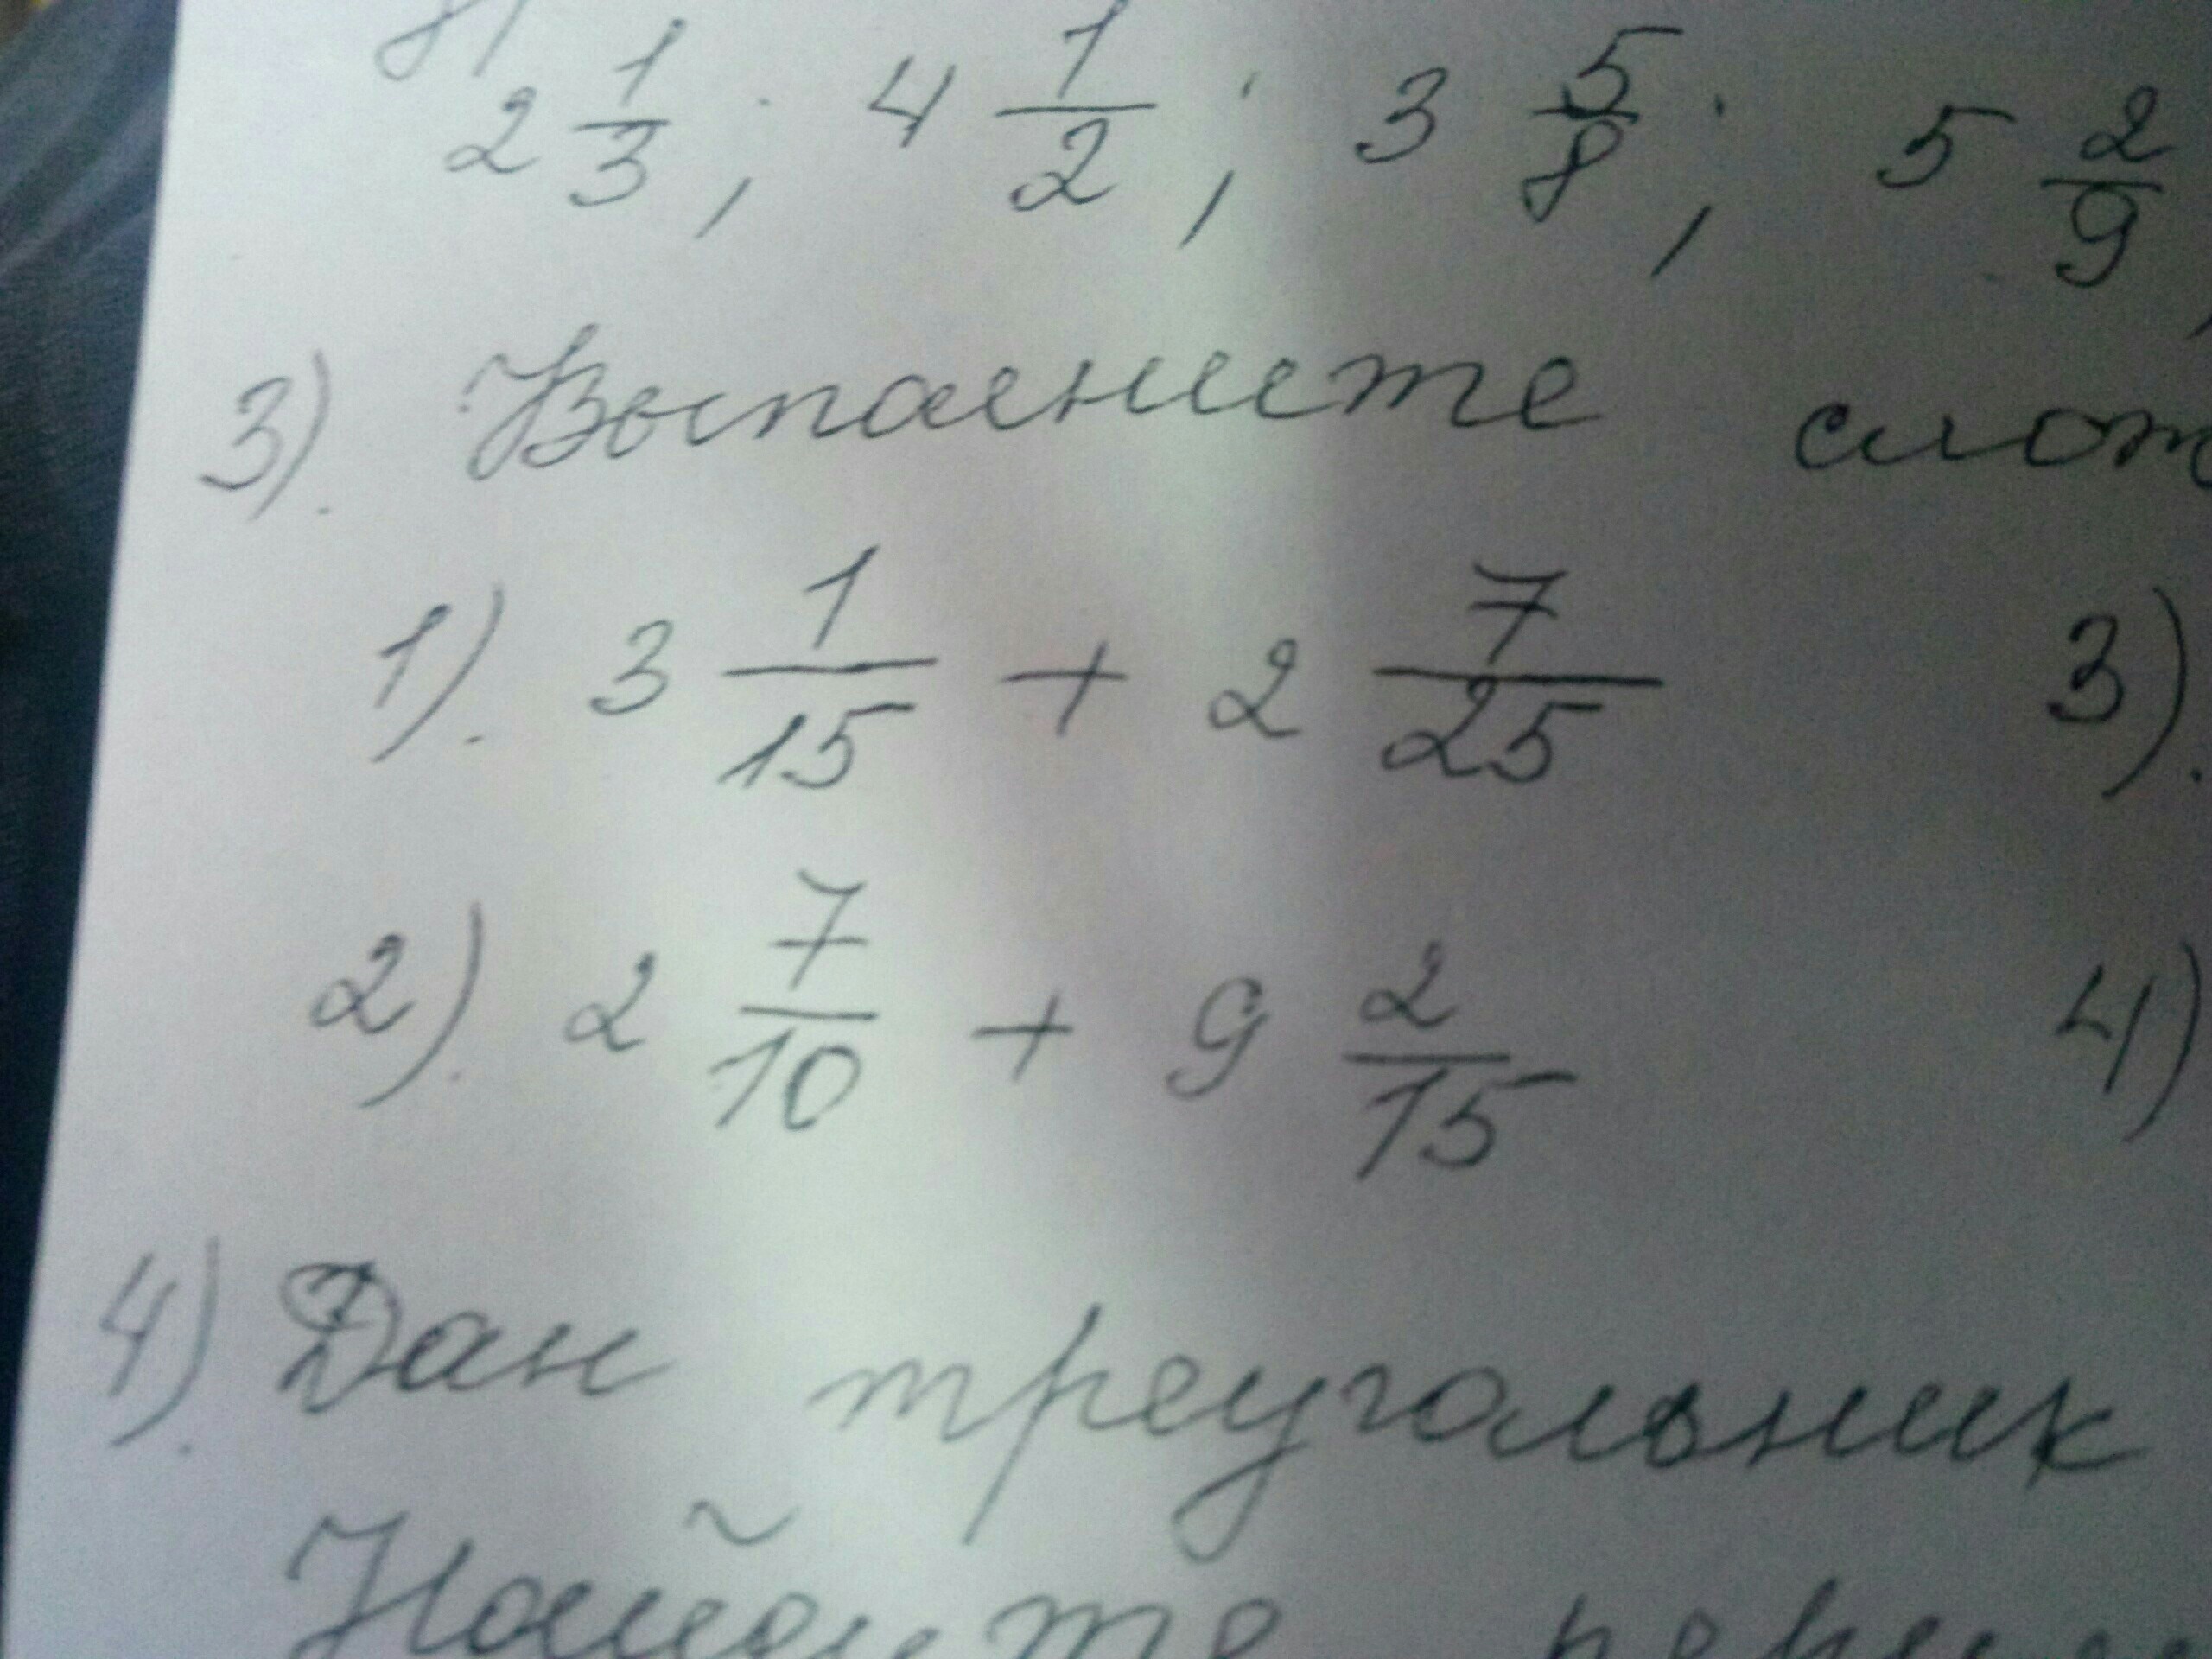 2 1/3 ; 4 1/2 ; 3 5/8 ; 5 2/9
3). Выполните слож
1). 3 1/15 + 2 7/25 3).
2). 2 7/10 + 9 2/15 4)
4). Дан треугольник
Найдите